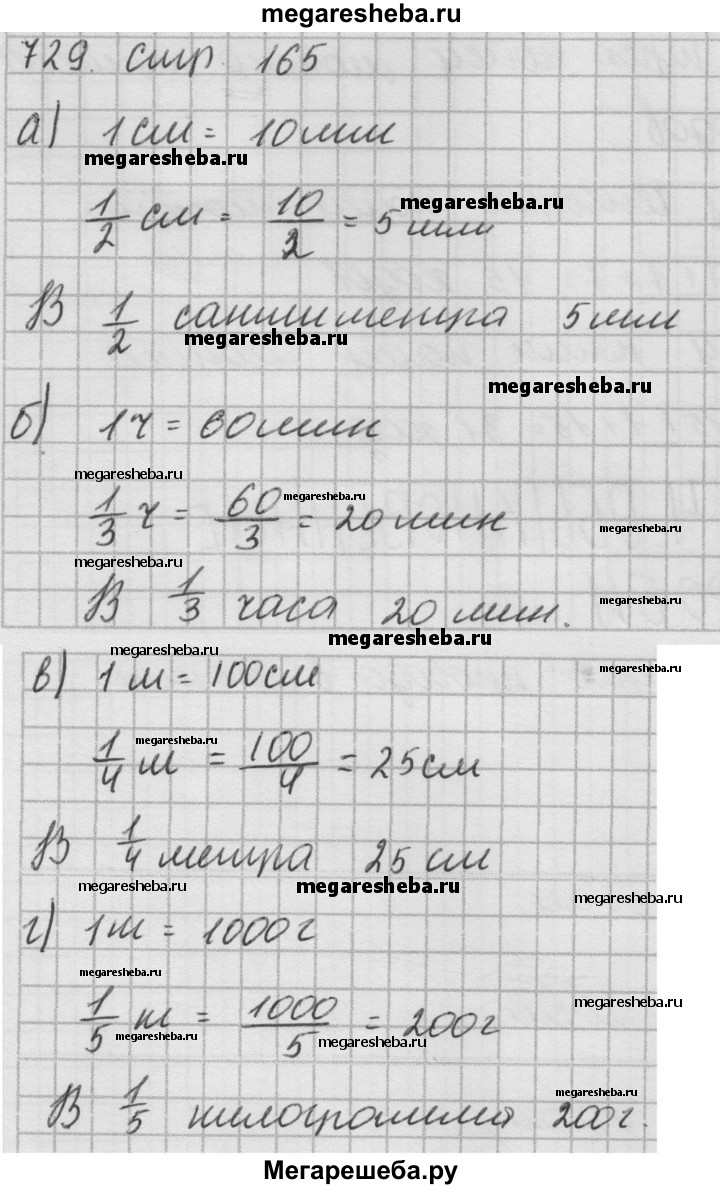 megaresheba.ru
729. стр. 165
а) 1 см = 10 мм
megaresheba.ru
1/2 см = 10/2 = 5 мм
megaresheba.ru
В 1/2 сантиметра 5 мм
megaresheba.ru
megaresheba.ru
б) 1 ч = 60 мин
megaresheba.ru
megaresheba.ru
1/3 ч = 60/3 = 20 мин
megaresheba.ru
megaresheba.ru
В 1/3 часа 20 мин.
megaresheba.ru
megaresheba.ru
megaresheba.ru
в) 1 м = 100 см
megaresheba.ru
megaresheba.ru
1/4 м = 100/4 = 25 см
megaresheba.ru
В 1/4 метра 25 см
megaresheba.ru
megaresheba.ru
megaresheba.ru
г) 1 м = 1000 г
megaresheba.ru
megaresheba.ru
1/5 м = 1000/5 = 200 г
megaresheba.ru
megaresheba.ru
megaresheba.ru
В 1/5 килограмма 200 г.
Мегарешеба.ру